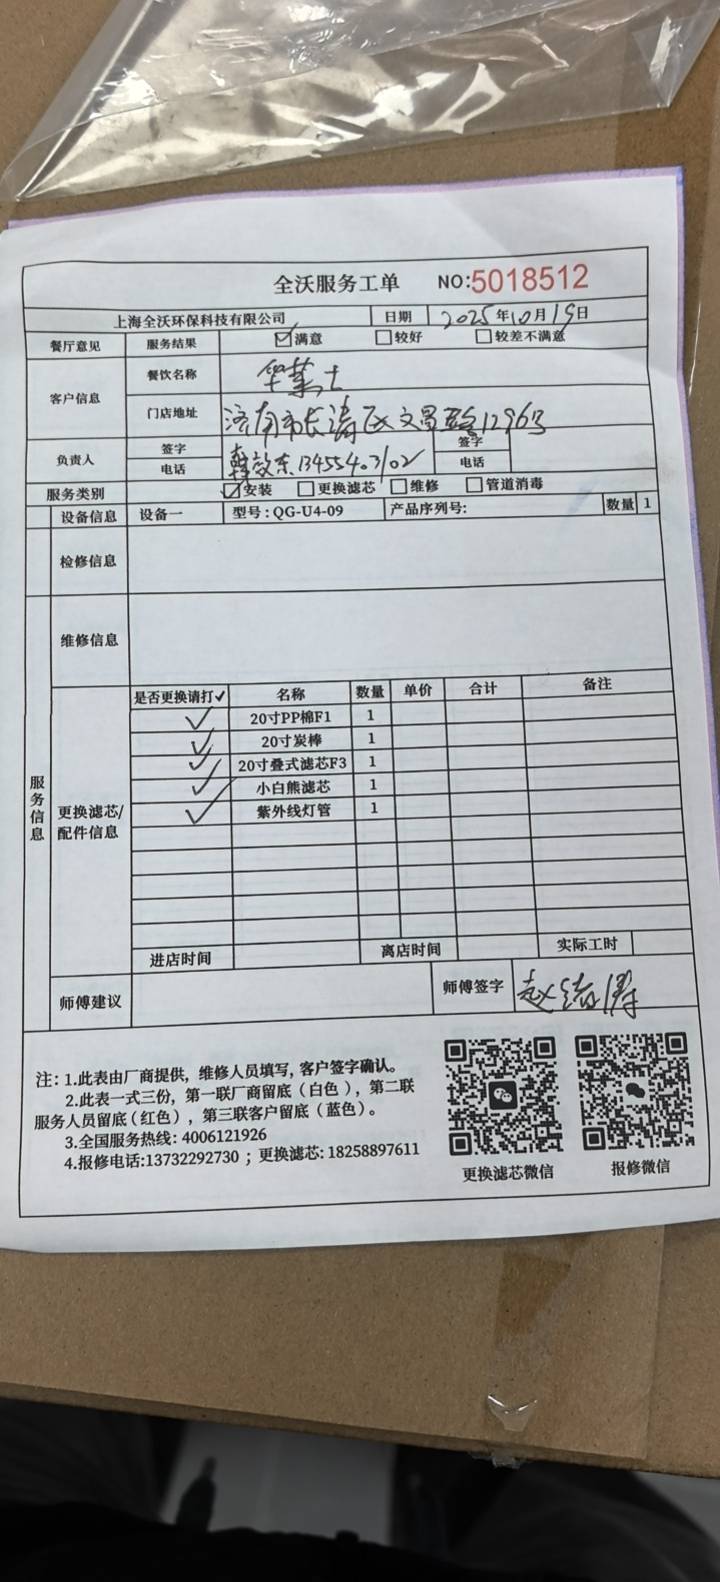 全沃服务工单 NO:5018512
上海全沃环保科技有限公司 日期 2025年10月19日
餐厅意见 服务结果 ☑满意 □较好 □较差不满意
客户信息 餐饮名称 华莱士
门店地址 济南市长清区文昌路1296号
负责人 签字 签字
电话 韩效东 13455403102 电话
服务类别 ☑安装 □更换滤芯 □维修 □管道消毒
设备信息 设备一 型号:QG-U4-09 产品序列号: 数量 1
检修信息
维修信息
服务信息
更换滤芯/配件信息
是否更换请打✓ 名称 数量 单价 合计 备注
✓ 20寸PP棉F1 1
✓ 20寸炭棒 1
✓ 20寸叠式滤芯F3 1
✓ 小白熊滤芯 1
✓ 紫外线灯管 1
进店时间 离店时间 实际工时
师傅建议 师傅签字 赵绪
注: 1.此表由厂商提供, 维修人员填写, 客户签字确认。
2.此表一式三份, 第一联厂商留底 (白色), 第二联
服务人员留底 (红色), 第三联客户留底 (蓝色)。
3.全国服务热线: 4006121926
4.报修电话:13732292730 ; 更换滤芯: 18258897611
更换滤芯微信 报修微信